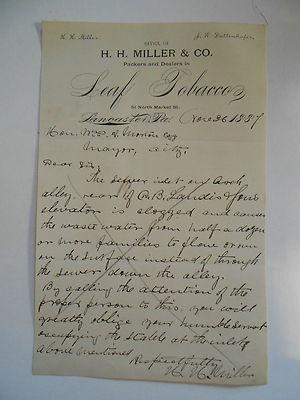 H. H. Miller. J. W. Dellenhofer
OFFICE OF
H. H. MILLER & CO.
Packers and Dealers in
Leaf Tobacco,
51 North Market St.
Lancaster, Pa. Nov 26 1887
Hon. Wm A. Morton Esq
Mayor, City,
Dear Sir,
The sewer inlet on Arch
alley rear of B. Landis & Sons
elevator is clogged and causes
the waste water from half a dozen
or more families to flow or run
on the surface instead of through
the sewer down the alley.
By calling the attention of the
proper person to this, you will
greatly oblige your humble servant
occupying the stable at the inlet
above mentioned.
Respectfully
H. H. Miller